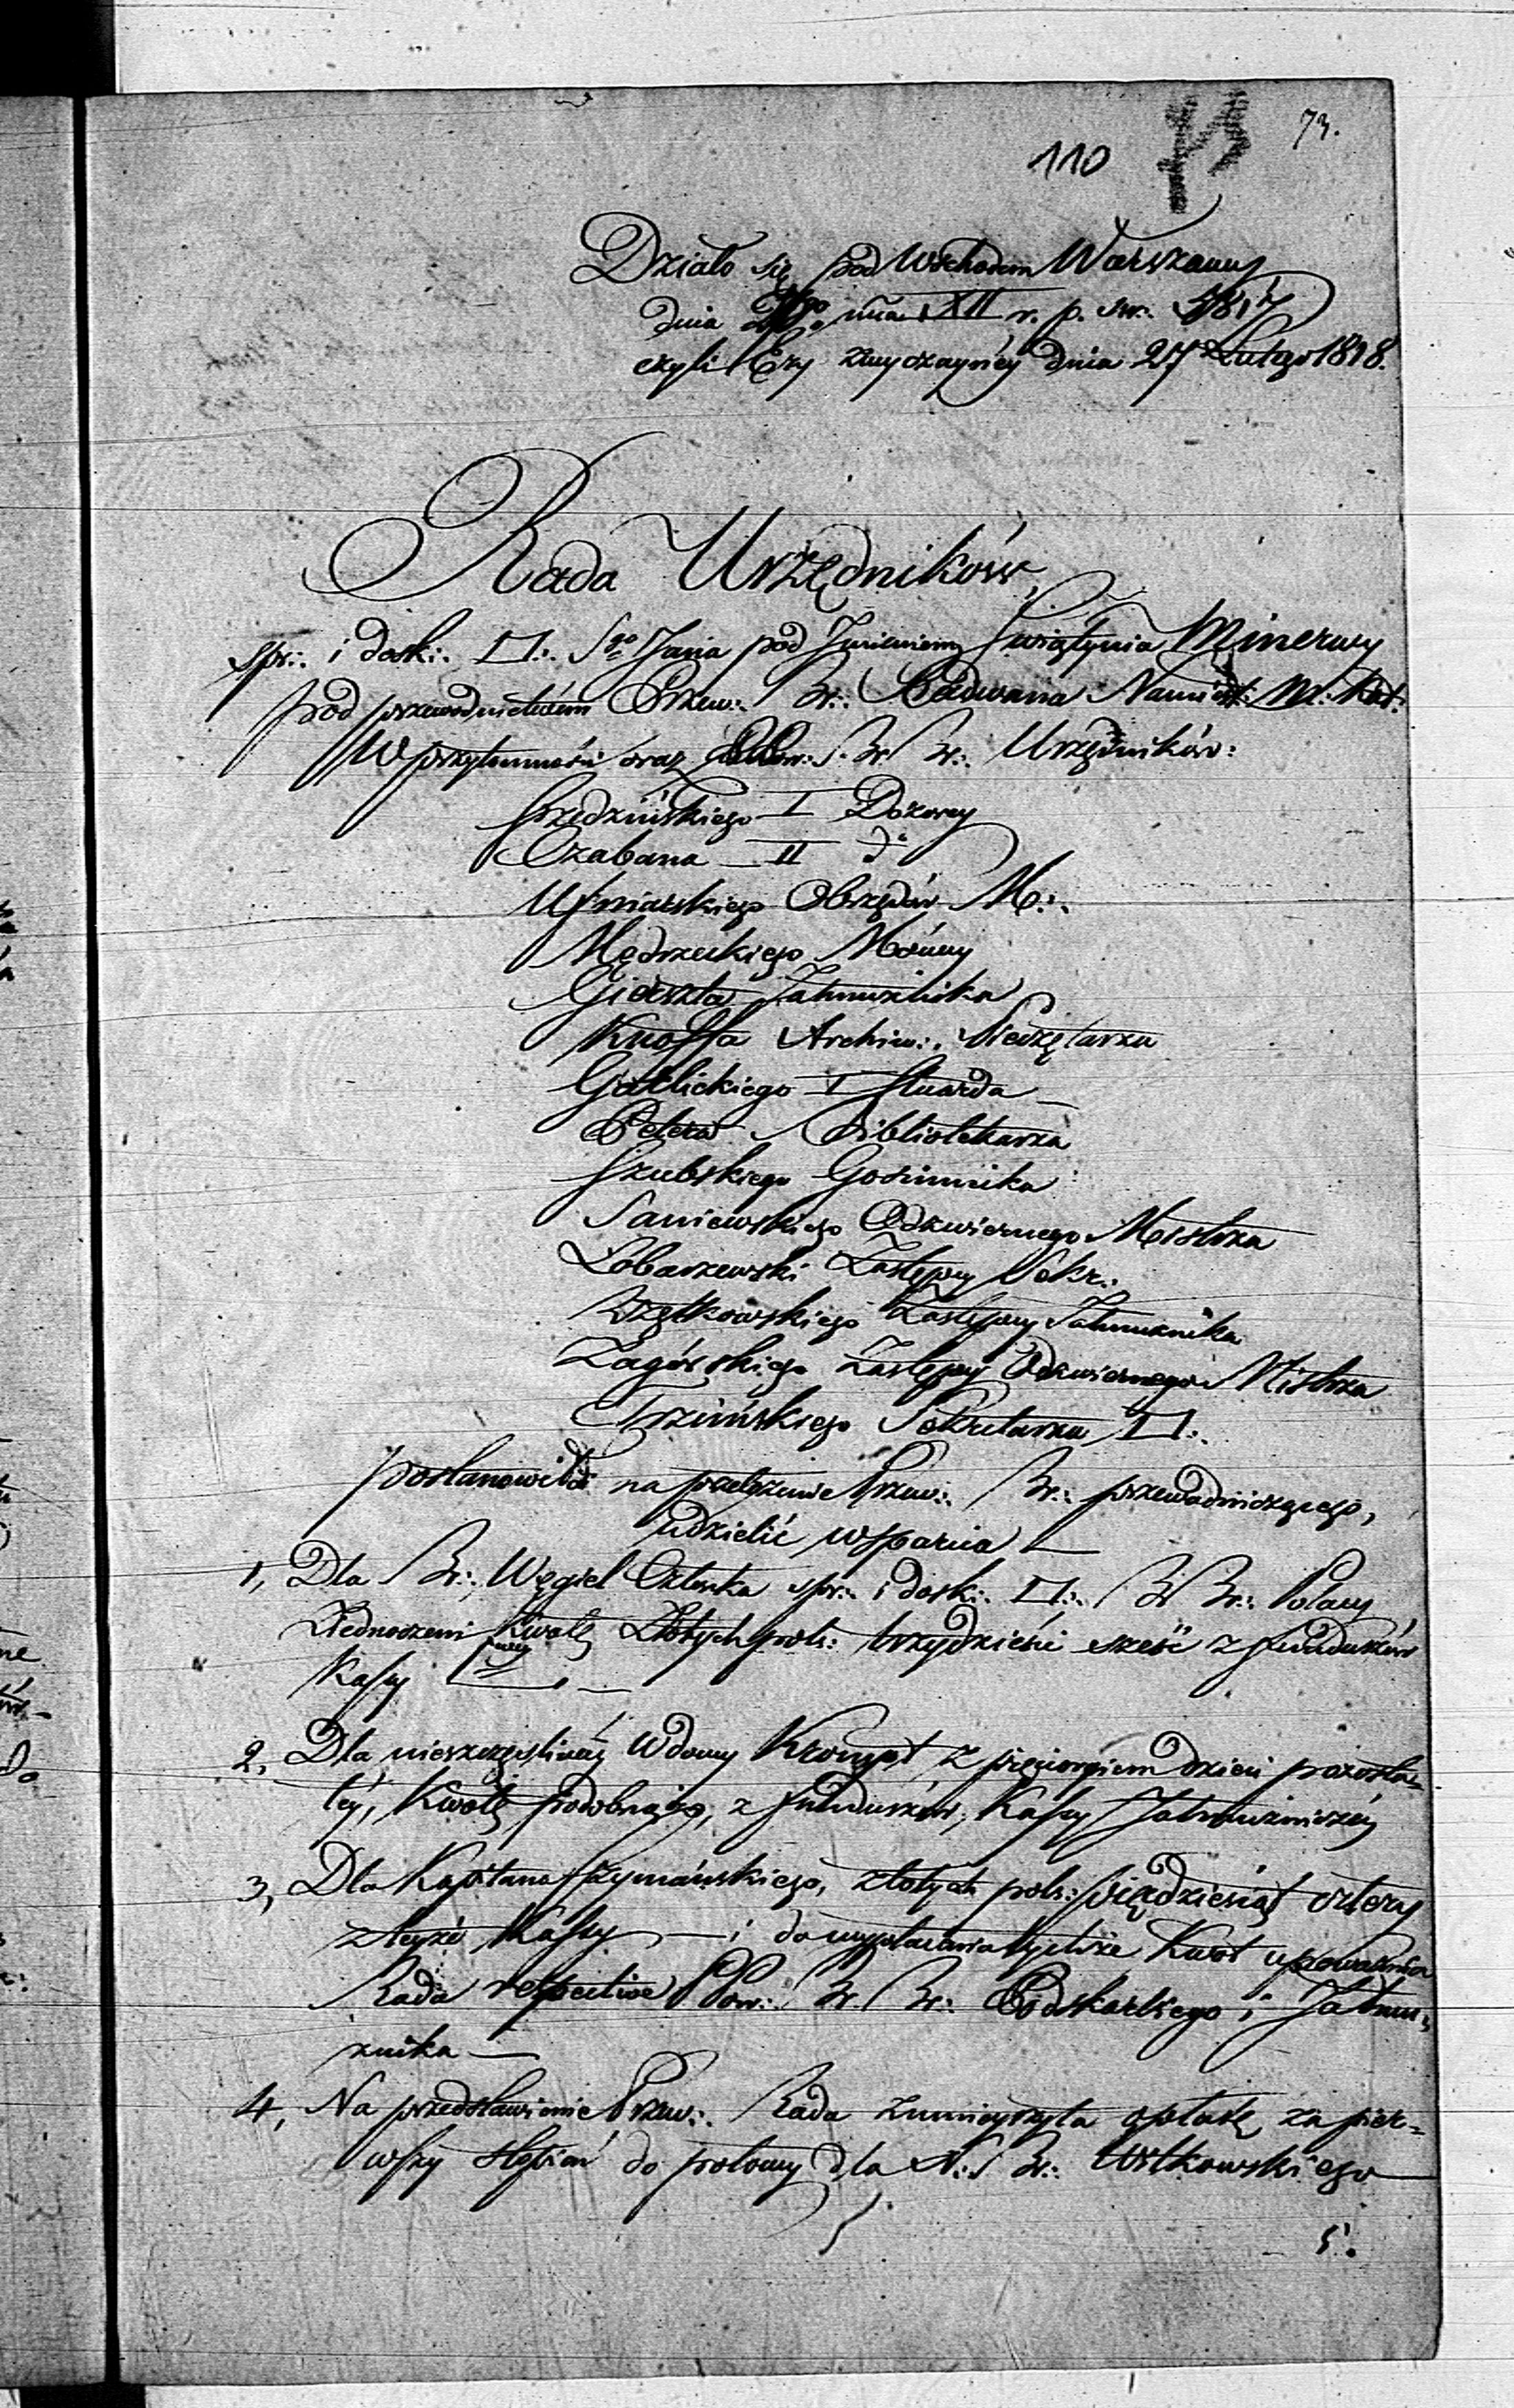 73.
110
Działo się pod Wschodem Warszawy
dnia mca XII r. p. sw. 5817
czyli Ery zwyczayney dnia 27 Lutego 1818.
Rada Urzędników,
Spr:. i dosk:. □:. Sgo Jana pod Imieniem Świątynia Minerwy
pod przewodnictwem Przew:. Br:. Radwana Namiest: M: Kat:
W przytomności oraz Br Br:. Urzędników:
Srzedzińskiego I Dozorcy
Czabana — II do
Uzniarskiego Obrzędów M:.
Mędrzeckiego Mówcy
Gierszta Jałmużnika
Knoffa Archiw:. Pieczętarza
Gatlickiego I Stuarda —
Petera Bibliotekarza
Szubskiego Gościnnika
Janiewskiego Odźwiernego Mistrza
Łobarzewski Zastępcy Sekr:.
Wrzątkowskiego Zastępcy Jałmużnika
Zagórskiego Zastępcy Odźwiernego Mistrza
Trzcińskiego Sekretarza □:.
postanowiła na przełożenie Przew:. Br:. przewodniczącego,
udzielić wsparcia —
1, Dla Br:. Węgiel Członka spr:. i dosk:. □:. Br Br:. Polacy
Zjednoczeni Kwotę Złotych pols: trzydzieści sześć z funduszów
Kassy —
2, Dla nieszczęśliwey Wdowy Krompt z pięciorgiem dzieci pozosta=
łéy, Kwotę podobnąż, z funduszów Kassy Jałmużniczéy
3, Dla Kapitana Szymańskiego, złotych pols: pięćdziesiąt cztery
z teyże Kassy — i do wypłacenia tychże Kwot upoważnia
Rada respective PPow:. Br Br:. Podskarbiego i Jałmu=
żnika —
4, Na przedstawienie Przew:. Rada zmnieyszyła opłatę za pier=
wszy stopień do połowy dla N:. Br:. Witkowskiego
5.